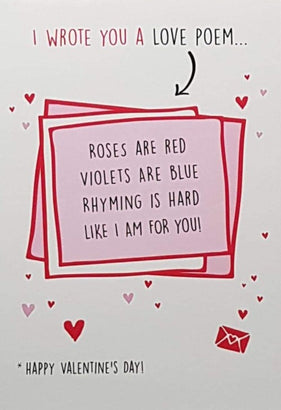 I WROTE YOU A LOVE POEM...
ROSES ARE RED
VIOLETS ARE BLUE
RHYMING IS HARD
LIKE I AM FOR YOU!
* HAPPY VALENTINE'S DAY!